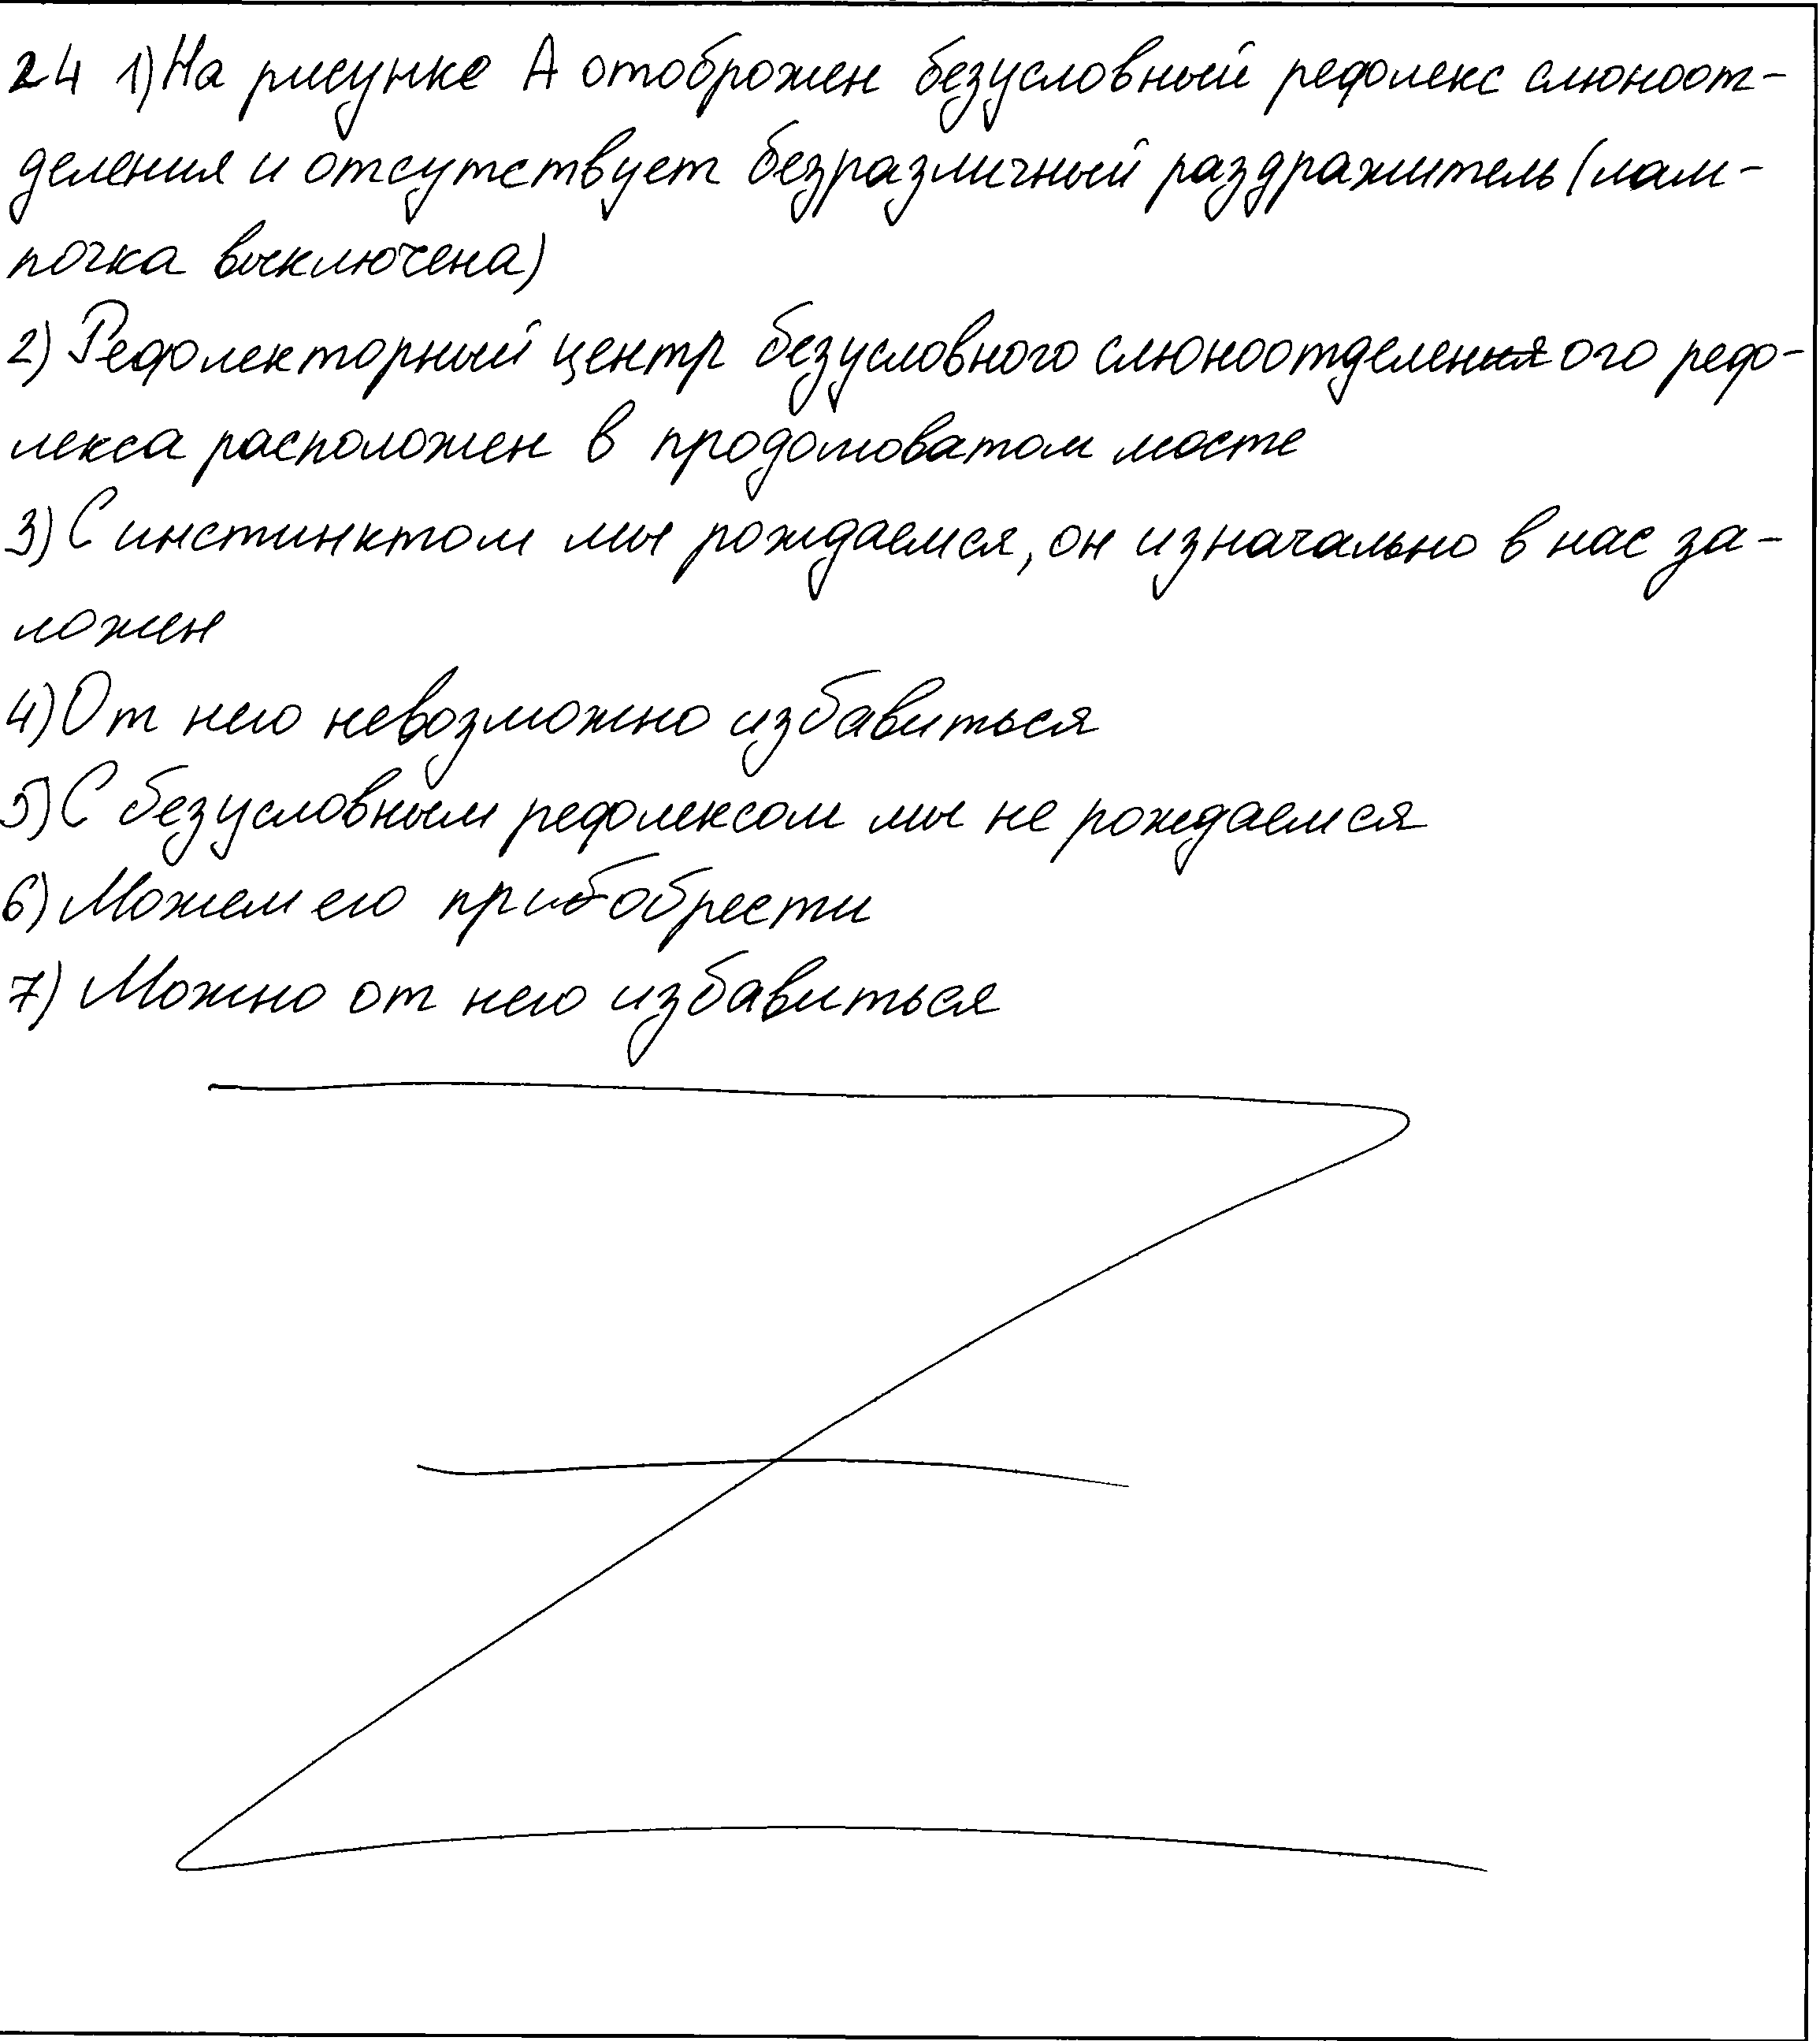 24 1) На рисунке А отоброжен безусловный рефлекс слюноот-
деления и отсутствует безразличный раздражитель (лам-
почка выключена)
2) Рефлекторный центр безусловного слюноотделенния ого реф-
лекса расположен в продолговатом мосте
3) С инстинктом мы рождаемся, он изначально в нас за-
ложен
4) От него невозможно избавиться
5) С безусловным рефлексом мы не рождаемся
6) Можем его приобрести
7) Можно от него избавиться